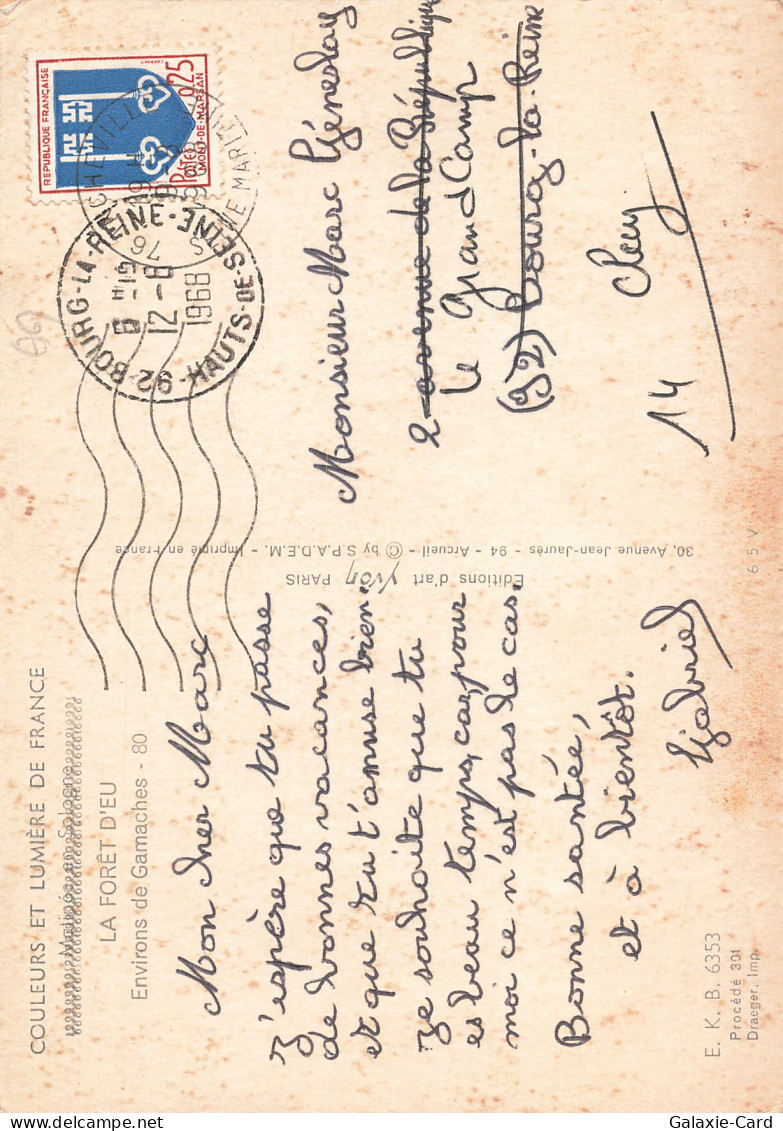 COULEURS ET LUMIÈRE DE FRANCE
LA FORÊT D'EU
Environs de Gamaches - 80
Mon cher Marc
J'espère que tu passe
de bonnes vacances,
et que tu t'amuse bien.
Je souhaite que tu
es beau temps, car, pour
moi ce n'est pas le cas.
Bonne santée,
et à bientôt.
Gabriel
E. K. B. 6353
Procédé 301
Draeger, Imp.
Editions d'art Yvon PARIS
30, Avenue Jean-Jaurès - 94 - Arcueil - © by S.P.A.D.E.M. - Imprimé en France
6 5 V
REPUBLIQUE FRANÇAISE
0,25
Postes
MONT-DE-MARSAN
76 S
SEINE MARITIME
92 BOURG-LA-REINE - HAUTS-DE-SEINE
6H-15
12-8
1968
Monsieur Marc
2 avenue de la République
Le Grand Camp
(92) Bourg-la-Reine
14
Galaxie-Card